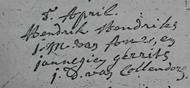 5. April
Hendrik Hendriks
j. M. van
en
jannegien gerrits
j. D. van Collendorn